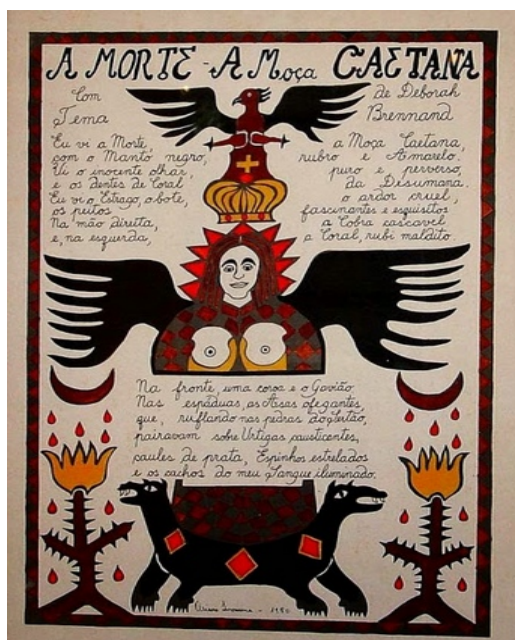 A MORTE - A Moça CAETANA
Com de Deborah
Tema Brennand
Eu vi a Morte, a Moça Caetana,
com o Manto negro, rubro e Amarelo.
Vi o inocente olhar, puro e perverso,
e os dentes de Coral da Desumana.
Eu vi o Estrago, o bote, o ardor cruel,
os peitos fascinantes e esquisitos
Na mão direita, a Cobra cascavel
e, na esquerda, a Coral, rubi maldito.
Na fronte, uma coroa e o Gavião
Nas espáduas, as Asas ofegantes
que, ruflando nas pedras do Sertão,
pairavam sobre Urtigas causticentes,
caules de prata, Espinhos estrelados
e os cachos do meu Sangue iluminado.
Ariano Suassuna - 1980